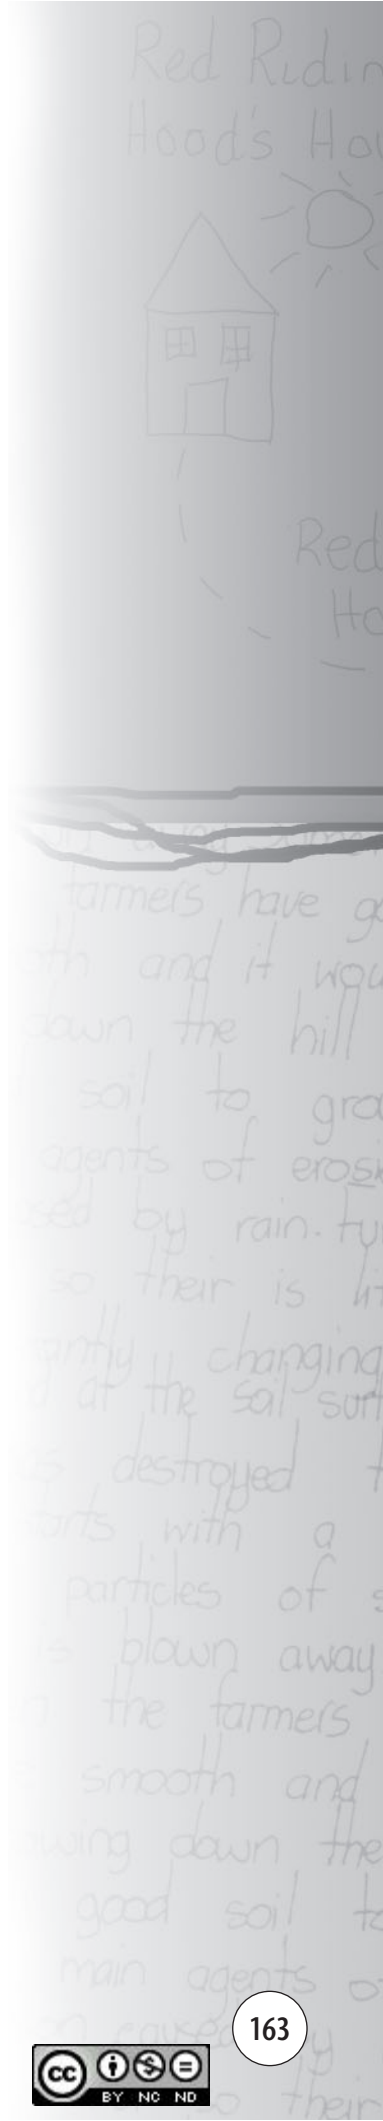 Red Ridin
Hood's Hou
Red
Ho
away some
farmers have go
and it wou
down the hill
soil to gro
agents of erosi
by rain. tu
so their is lit
changing
at the soil surf
destroyed t
with a
particles of s
is blown away
the farmers
smooth and
down the
good soil to
main agents o
163
caused by
cc
BY NC ND
their